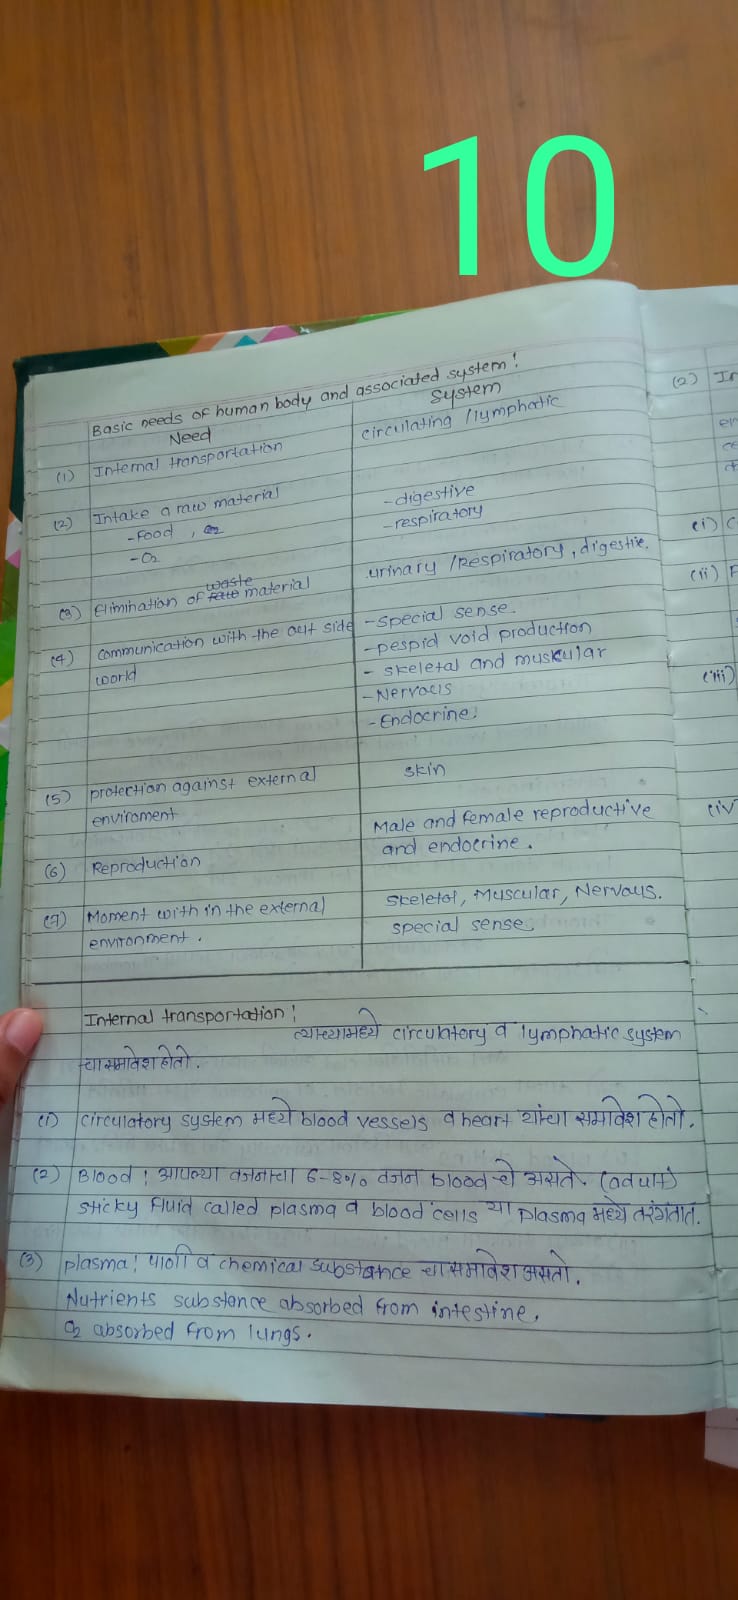 10
Basic needs of human body and associated system!
Need System
(1) Internal transportation circulating /lymphatic
(2) Intake a raw material -digestive
-Food , O2 -respiratory
-O2
(3) Elimination of waste material urinary /Respiratory, digestie.
(4) communication with the out side -special sense.
world -pespid void production
- skeletal and muskular
-Nervous
-Endocrine!
(5) protection against external skin
enviroment
Male and female reproductive
(6) Reproduction and endocrine.
(7) Moment with in the external skeletal, Muscular, Nervous.
environment. special sense.
Internal transportation!
त्याच्यामध्ये circulatory व lymphatic system
चा समावेश होतो.
(1) circulatory system मध्ये blood vessels व heart यांचा समावेश होतो.
(2) Blood ! आपल्या वजनाच्या 6-8% वजन blood चे असते. (adult)
sticky fluid called plasma व blood cells या plasma मध्ये तरंगतात.
(3) plasma! पाणी व chemical substance चा समावेश असतो.
Nutrients substance absorbed from intestine.
O2 absorbed from lungs.
(2) In
(i) C
(ii) F
(iii)
(iv